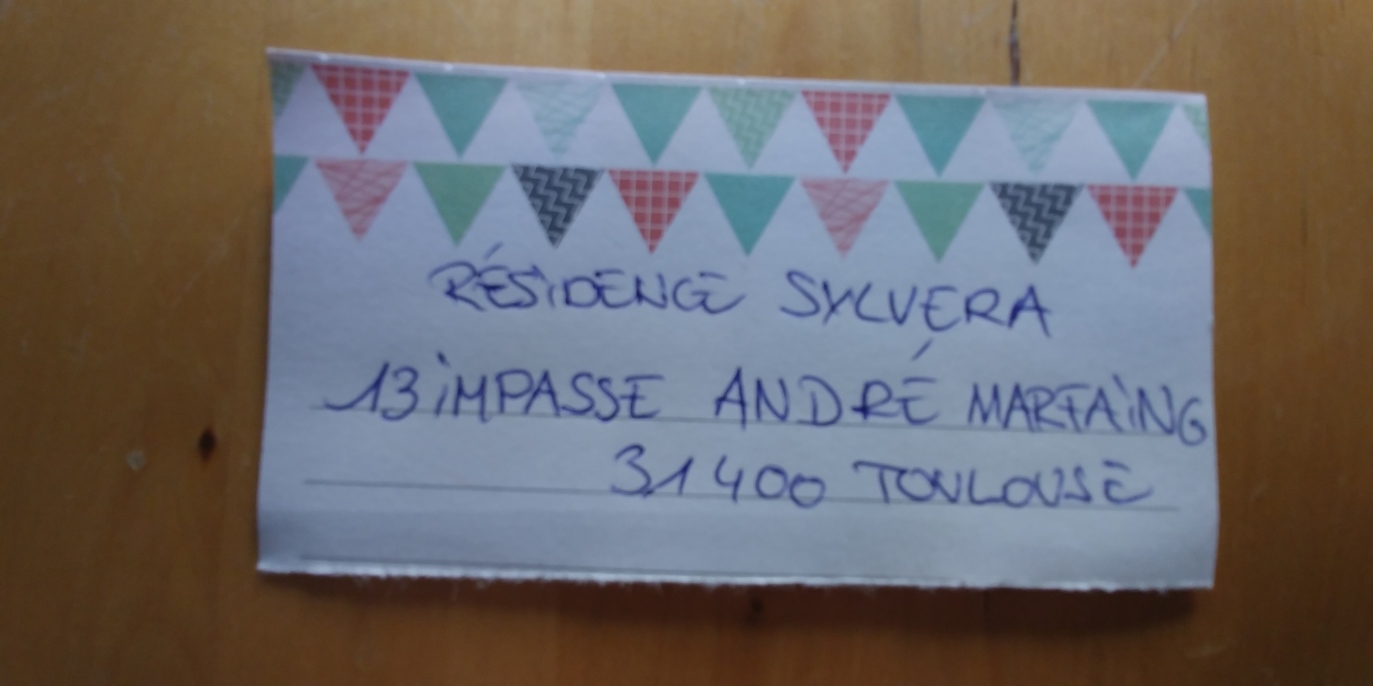 RÉSIDENCE SYLVÉRA
13 IMPASSE ANDRÉ MARFAING
31400 TOULOUSE